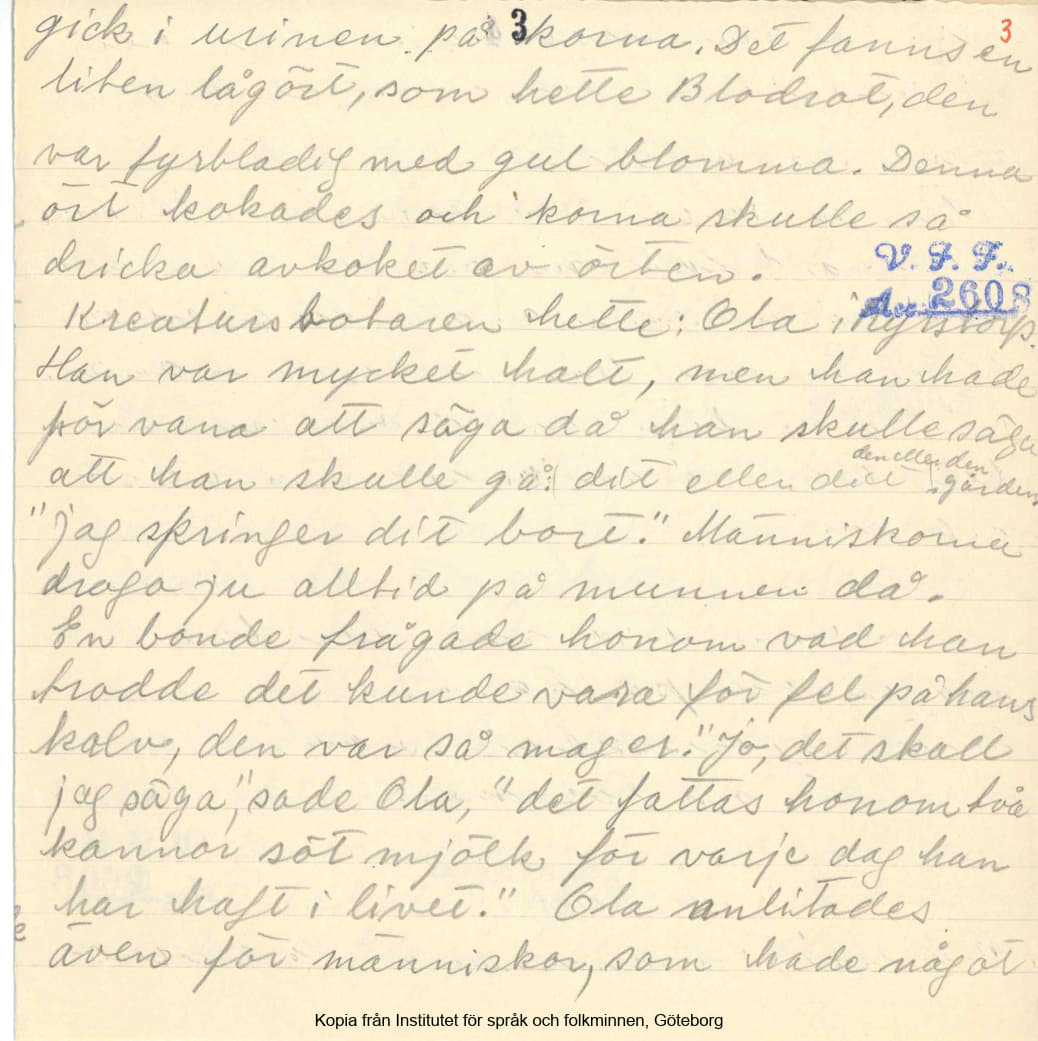 3
3
gick i urinen på korna. Det fanns en
liten lågört, som hette Blodrot, den
var fyrbladig med gul blomma. Denna
ört kokades och korna skulle så
dricka avkoket av örten.
V. F. F.
Acc 2608
Kreatursbotaren hette: Ola i Nyrstorp.
Han var mycket halt, men han hade
för vana att säga då han skulle säga
den eller den
att han skulle gå: dit eller dit gården
"jag springer dit bort." Människorna
drogo ju alltid på munnen då.
En bonde frågade honom vad han
trodde det kunde vara för fel på hans
kalv, den var så mager. "Jo, det skall
jag säga", sade Ola, "det fattas honom två
kannor söt mjölk för varje dag han
har haft i livet." Ola anlitades
även för människor, som hade något
Kopia från Institutet för språk och folkminnen, Göteborg